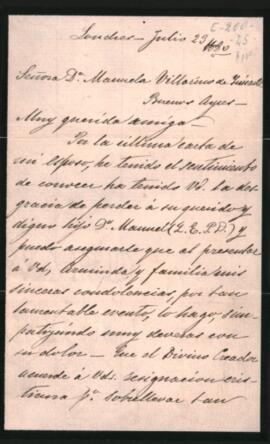 Londres - Julio 23 1880
Señora Da. Manuela Villarino de
Buenos Ayres -
Muy querida amiga -
Por la última carta de
mi esposo, he tenido el sentimiento
de conocer ha tenido Vd. la des
gracia de perder á su querido y
digno hijo Dn. Manuel (Q.E.P.D.) y
puedo asegurarle que al presentar
á Vd, Arminda y familia mis
sinceras condolencias, por tan
lamentable evento, lo hago, sim-
patizando muy deveras con
su dolor - Que el Divino Creador
acuerde á Vds. resignacion cris-
tiana pa. sobrellevar tan